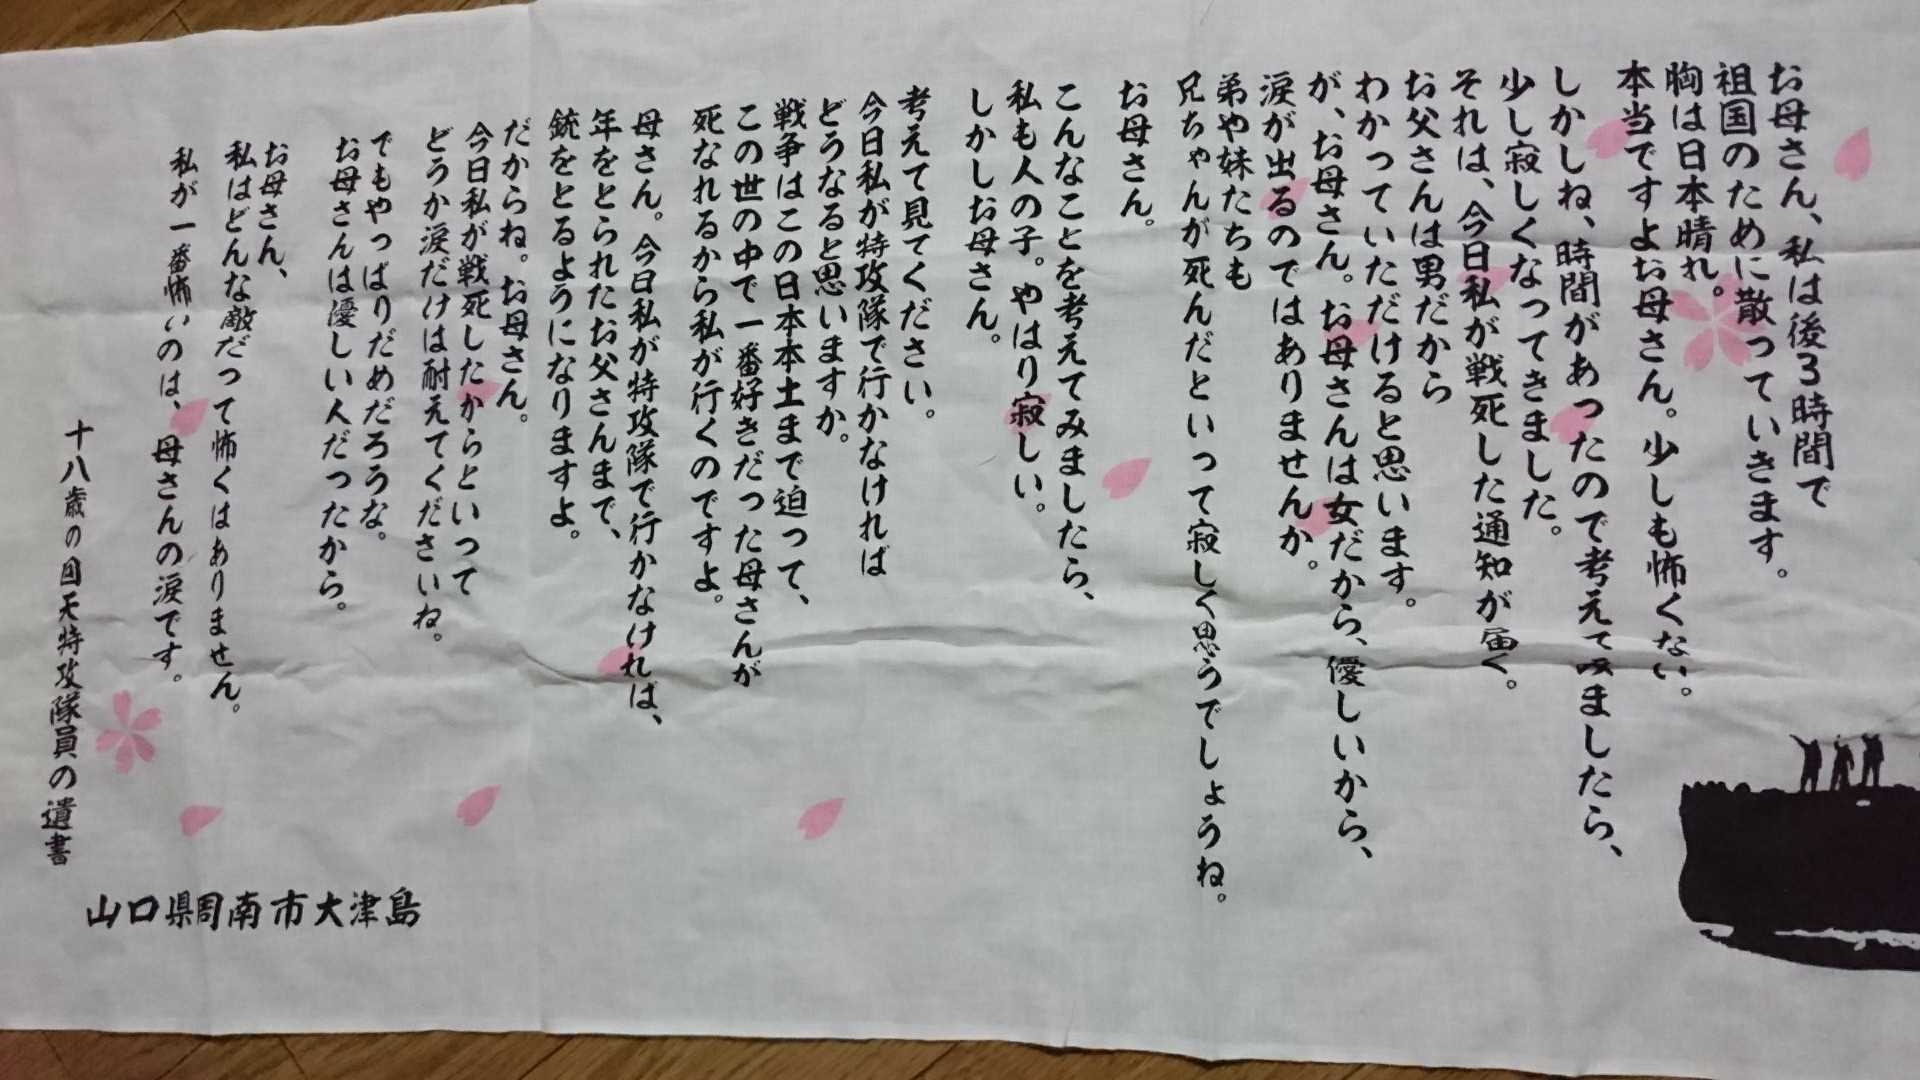 お母さん、私は後3時間で
祖国のために散っていきます。
胸は日本晴れ。
本当ですよお母さん。少しも怖くない。
しかしね、時間があったので考えてみましたら、
少し寂しくなってきました。
それは、今日私が戦死した通知が届く。
お父さんは男だから
わかっていただけると思います。
が、お母さん。お母さんは女だから、優しいから、
涙が出るのではありませんか。
弟や妹たちも
兄ちゃんが死んだといって寂しく思うでしょうね。
お母さん。
こんなことを考えてみましたら、
私も人の子。やはり寂しい。
しかしお母さん。
考えて見てください。
今日私が特攻隊で行かなければ
どうなると思いますか。
戦争はこの日本本土まで迫って、
この世の中で一番好きだった母さんが
死なれるから私が行くのですよ。
母さん。今日私が特攻隊で行かなければ、
年をとられたお父さんまで、
銃をとるようになりますよ。
だからね。お母さん。
今日私が戦死したからといって
どうか涙だけは耐えてくださいね。
でもやっぱりだめだろうな。
お母さんは優しい人だったから。
お母さん、
私はどんな敵だって怖くはありません。
私が一番怖いのは、母さんの涙です。
十八歳の回天特攻隊員の遺書
山口県周南市大津島